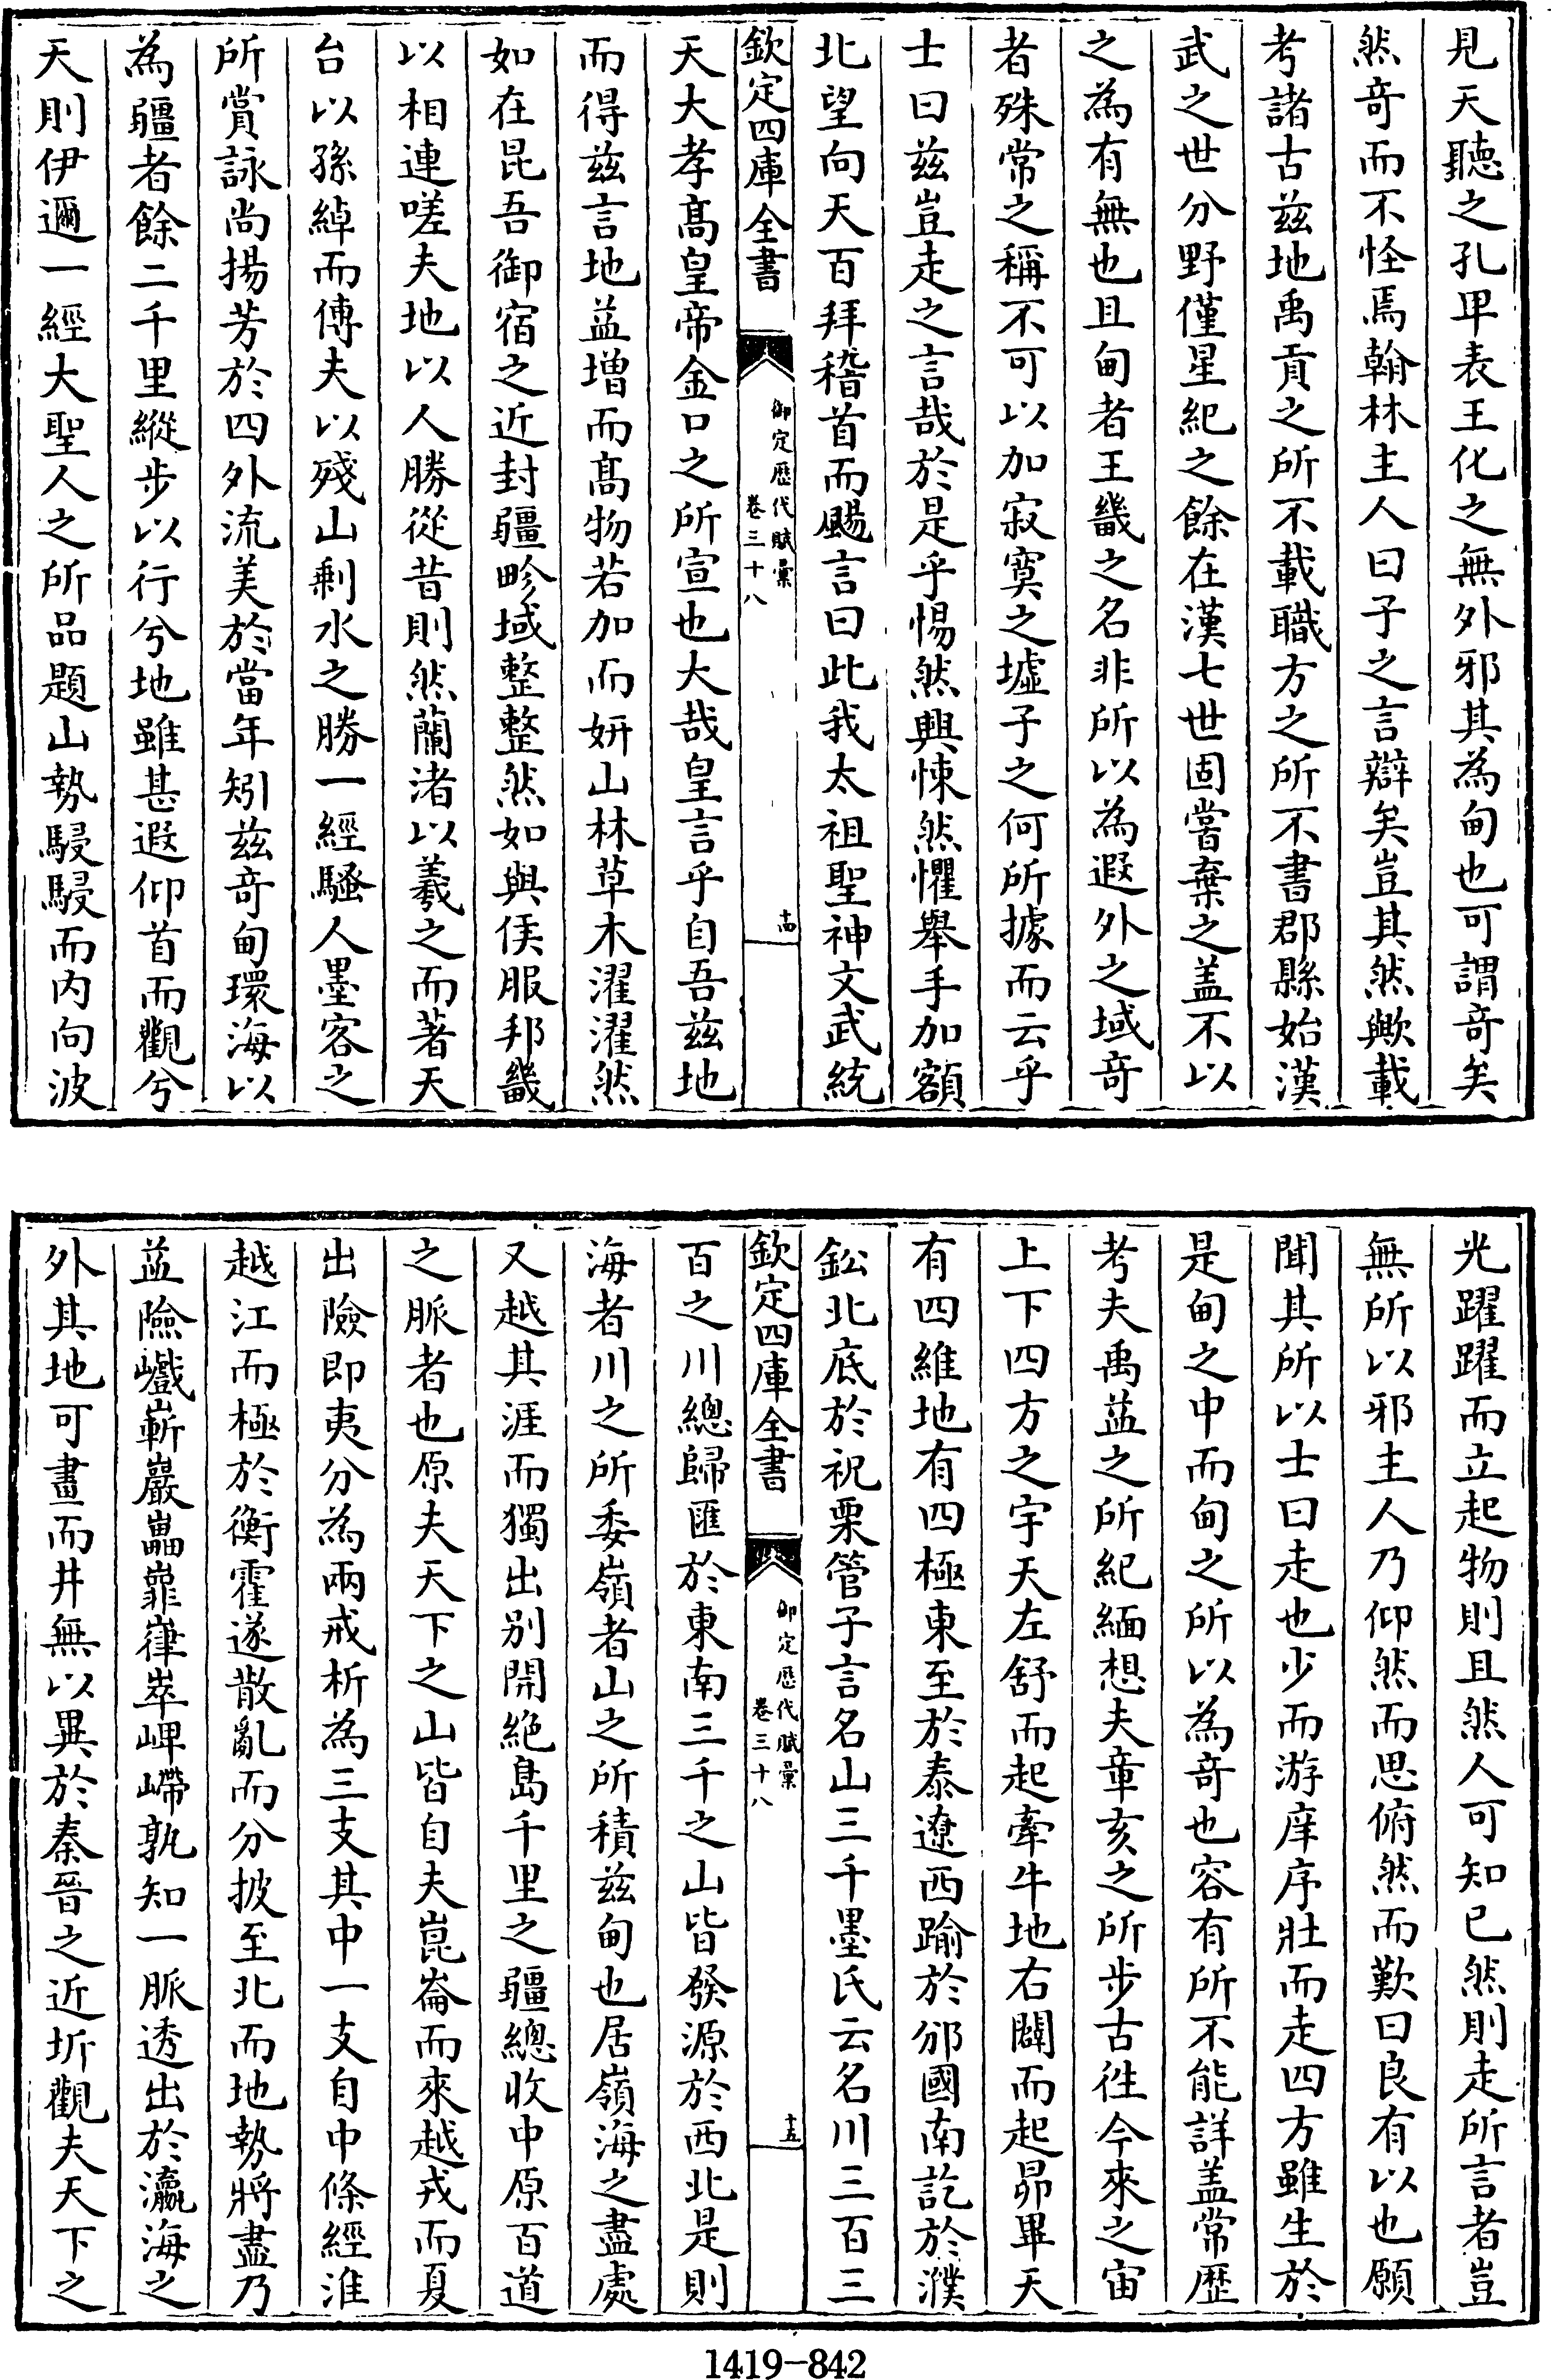 見天聽之孔卑表王化之無外邪其為甸也可謂竒矣
然竒而不怪焉翰林主人曰子之言辯矣豈其然歟載
考諸古兹地禹貢之所不載職方之所不書郡縣始漢
武之世分野僅星紀之餘在漢七世固嘗棄之盖不以
之為有無也且甸者王畿之名非所以為遐外之域竒
者殊常之稱不可以加寂寞之墟子之何所據而云乎
士曰兹豈走之言哉於是乎惕然興悚然懼舉手加額
北望向天百拜稽首而颺言曰此我太祖聖神文武統
欽定四庫全書
御定歷代賦彙
卷三十八
十四
天大孝髙皇帝金口之所宣也大哉皇言乎自吾兹地
而得兹言地益增而髙物若加而妍山林草木濯濯然
如在昆吾御宿之近封疆畛域整整然如與侯服邦畿
以相連嗟夫地以人勝從昔則然蘭渚以羲之而著天
台以孫綽而傳夫以殘山剩水之勝一經騷人墨客之
所賞詠尚揚芳於四外流美於當年矧兹竒甸環海以
為疆者餘二千里縱步以行兮地雖甚遐仰首而觀兮
天則伊邇一經大聖人之所品題山勢駸駸而内向波
光躍躍而立起物則且然人可知已然則走所言者豈
無所以邪主人乃仰然而思俯然而歎曰良有以也願
聞其所以士曰走也少而游庠序壯而走四方雖生於
是甸之中而甸之所以為竒也容有所不能詳盖常歷
考夫禹益之所紀緬想夫章亥之所步古徃今來之宙
上下四方之宇天左舒而起牽牛地右闢而起昴畢天
有四維地有四極東至於泰遼西踰於邠國南訖於濮
鈆北底於祝栗管子言名山三千墨氏云名川三百三
欽定四庫全書
御定歷代賦彙
卷三十八
十五
百之川總歸匯於東南三千之山皆發源於西北是則
海者川之所委嶺者山之所積兹甸也居嶺海之盡處
又越其涯而獨出别開絶島千里之疆總收中原百道
之脈者也原夫天下之山皆自夫崑崙而來越戎而夏
出險即夷分為兩戒析為三支其中一支自中條經淮
越江而極於衡霍遂散亂而分披至北而地勢將盡乃
益險巇嶄巖畾嶵嵂崒崥㠜孰知一脈透出於瀛海之
外其地可畫而井無以異於秦晉之近圻觀夫天下之
1419-842